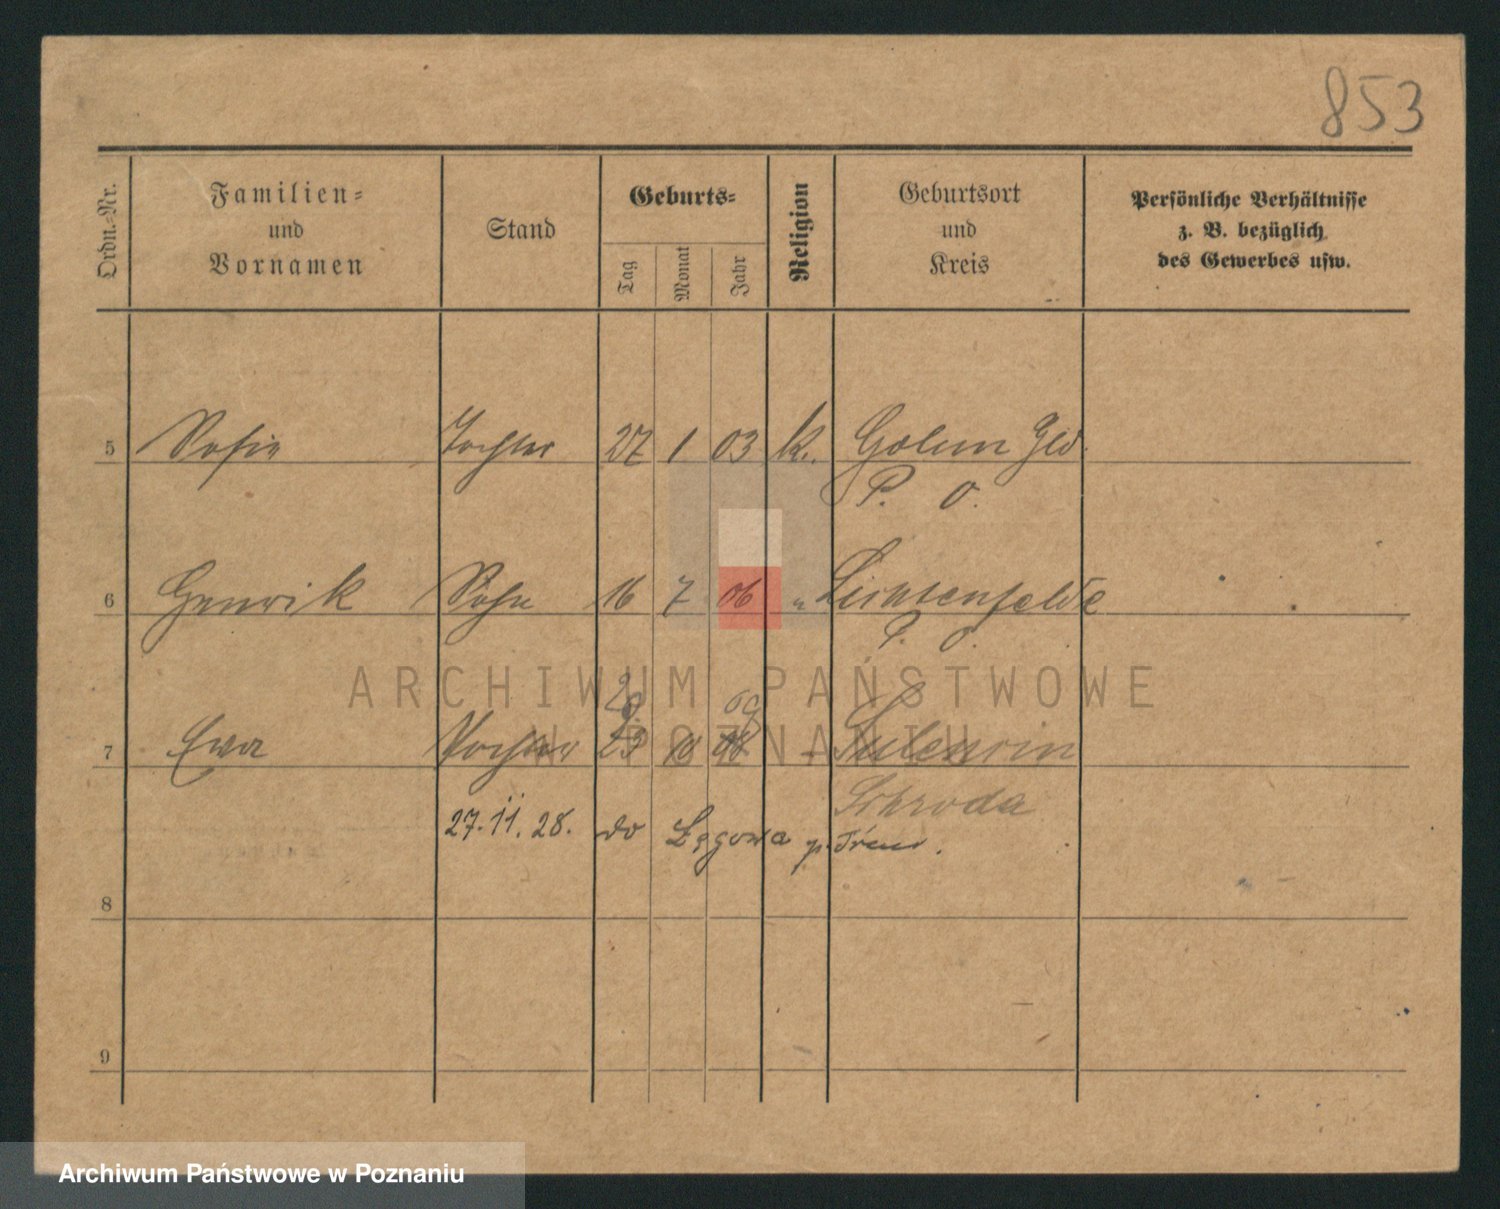 853
Ordn.-Nr.
Familien-
und
Vornamen
Stand
Geburts-
Tag
Monat
Jahr
Religion
Geburtsort
und
Kreis
Persönliche Verhältnisse
z. B. bezüglich
des Gewerbes usw.
5 Sofie Tochter 27 1 03 k. Golun
P. O.
6 Henrik Sohn 16 7 06 " Lichtenfelde
P. O.
ARCHIWUM PAŃSTWOWE
W POZNANIU
7 Ewa Tochter 10 Sulencin
Schroda
27.11.28. do Łęgowa p.
8
9
Archiwum Państwowe w Poznaniu